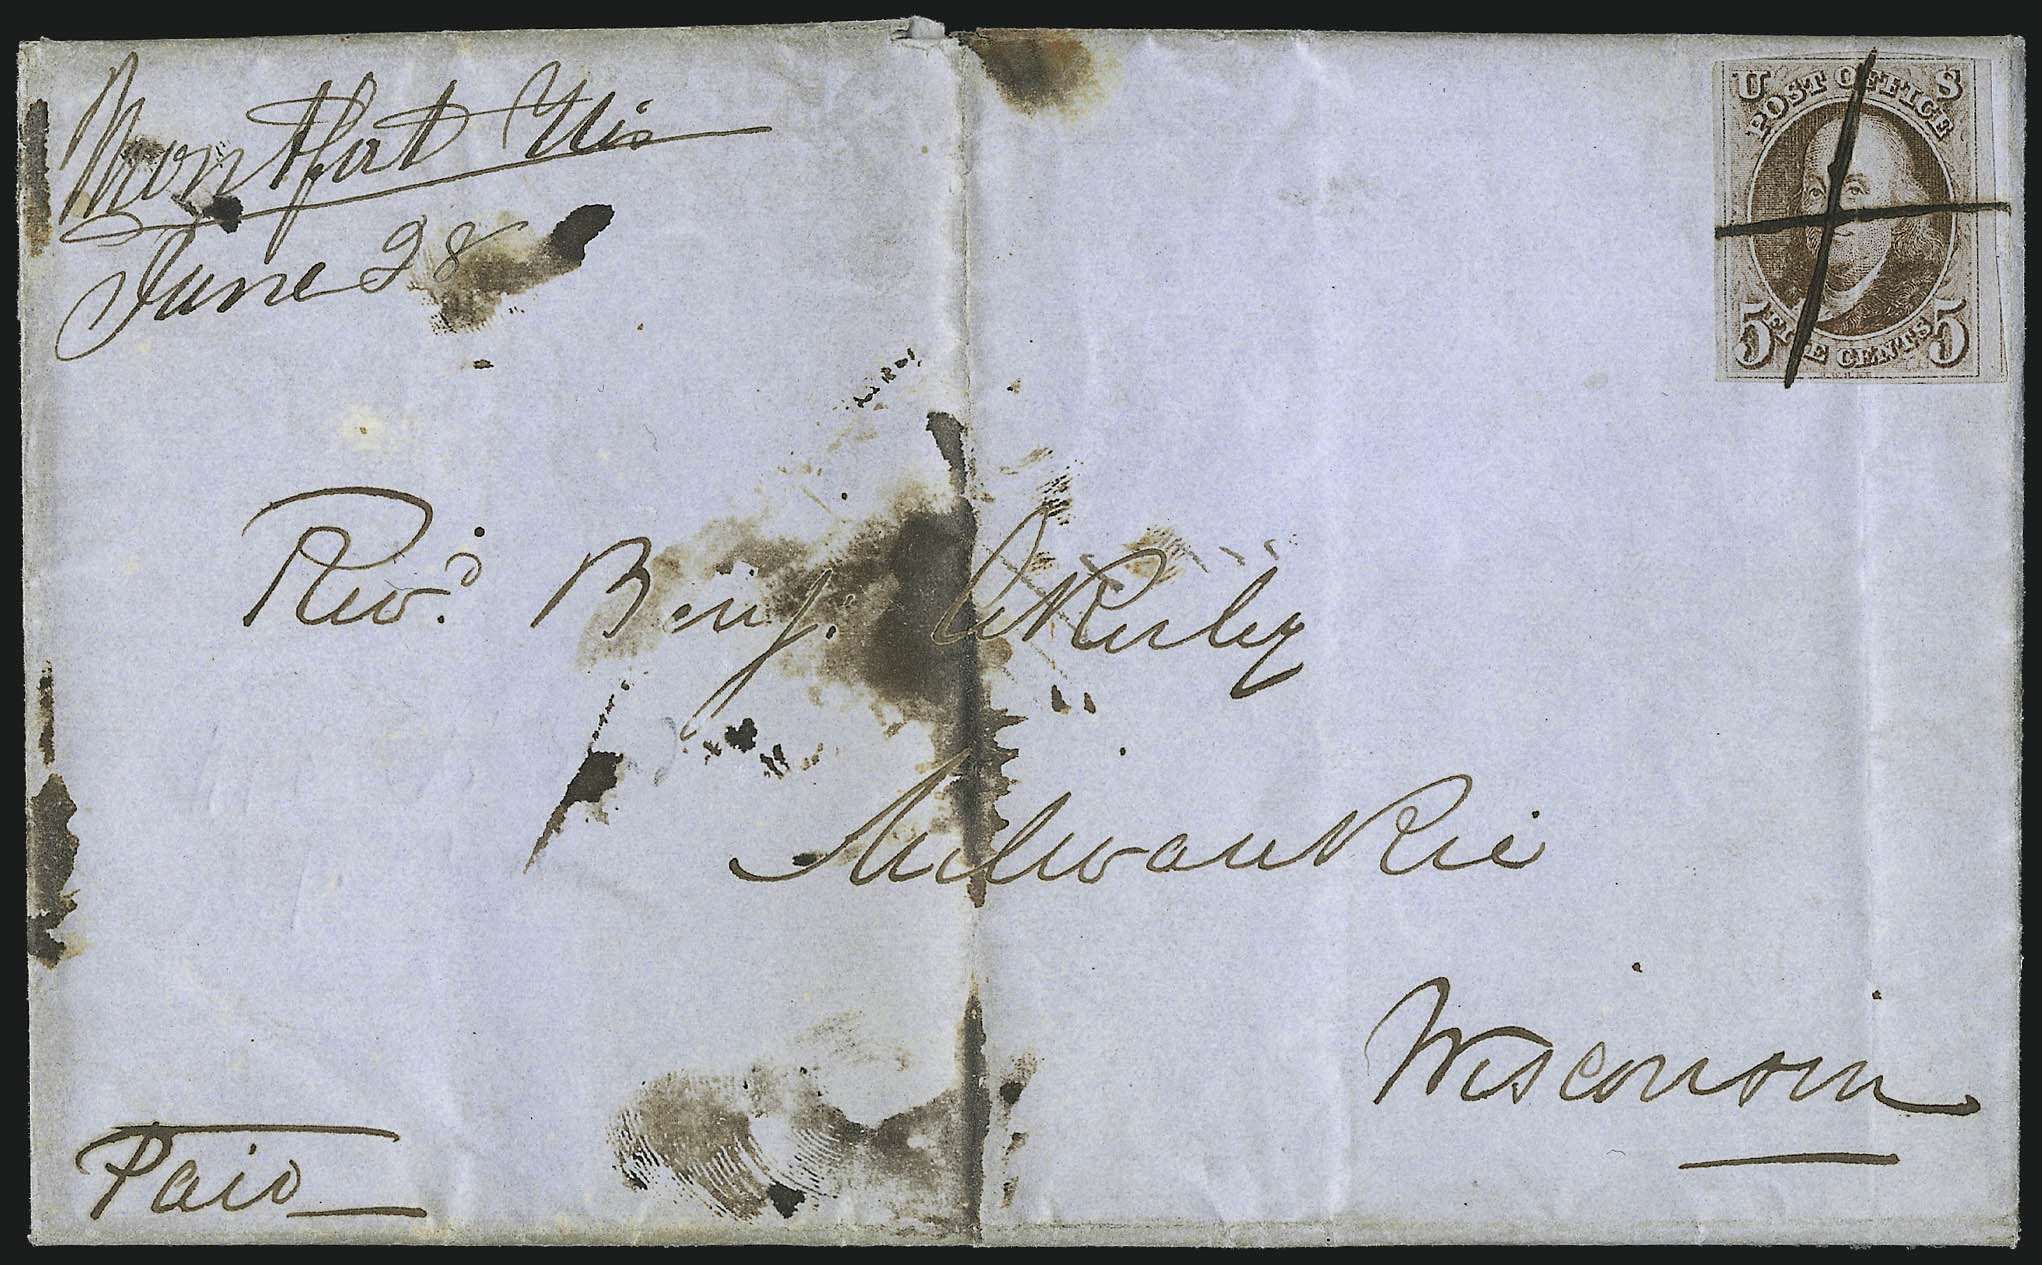 Montfort Wis
June 28
U S
POST OFFICE
5 FIVE CENTS 5
Revd. Benj. Akerly
Milwaukie
Wisconsin
Paid